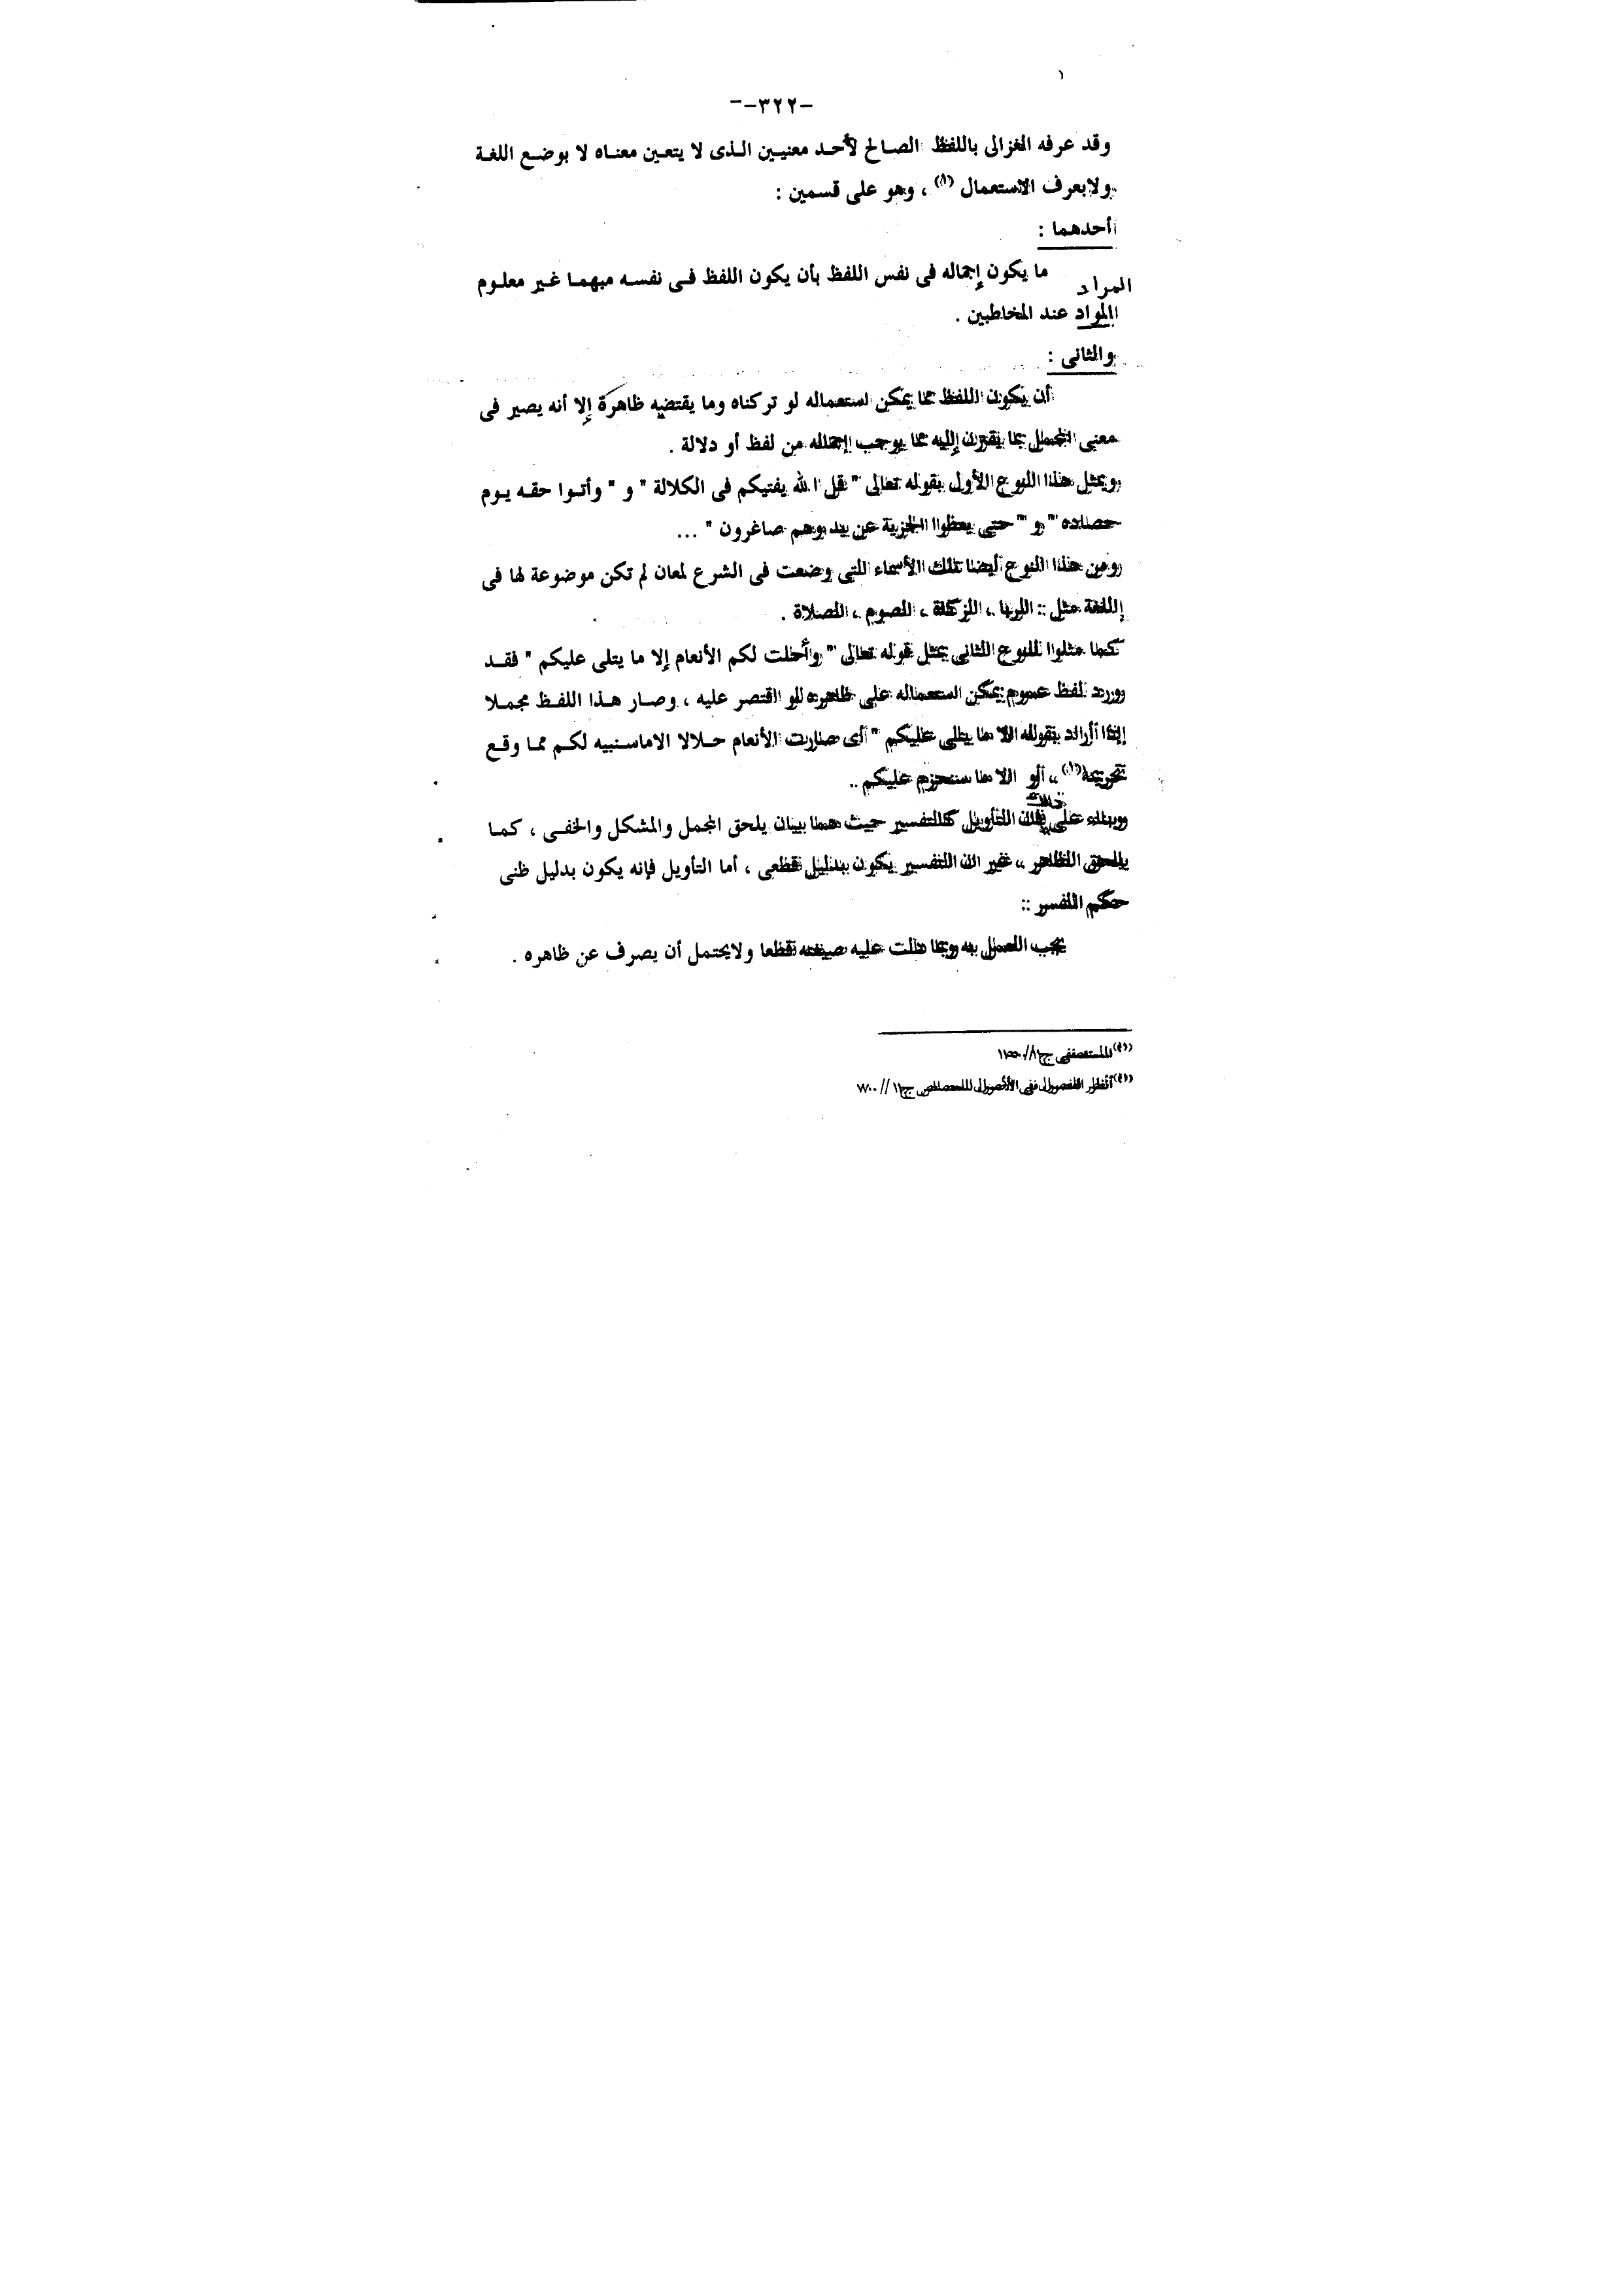 -٣٢٢--
وقد عرفه الغزالى باللفظ الصالح لأحد معنيين الذى لا يتعين معناه لا بوضع اللغة
ولابعرف الاستعمال (١) ، وهو على قسمين :
أحدهما :
ما يكون إجماله فى نفس اللفظ بأن يكون اللفظ فى نفسه مبهما غير معلوم
المراد
المواد عند المخاطبين .
والثانى :
أن يكون اللفظ مما يمكن استعماله لو تركناه وما يقتضيه ظاهرة إلا أنه يصير فى
معنى المجمل بما يقترن إليه مما يوجب إجماله من لفظ أو دلالة .
ويمثل هذا النوع الأول بقوله تعالى " قل الله يفتيكم فى الكلالة " و " وأتوا حقه يوم
حصاده " و " حتى يعطوا الجزية عن يد وهم صاغرون " ...
ومن هذا النوع أيضا تلك الأسماء التى وضعت فى الشرع لمعان لم تكن موضوعة لها فى
اللغة مثل : الربا ، الزكاة ، الصوم ، الصلاة .
كما مثلوا للنوع الثانى بمثل قوله تعالى " وأحلت لكم الأنعام إلا ما يتلى عليكم " فقد
ورد لفظ عموم يمكن استعماله على ظاهره لو اقتصر عليه ، وصار هذا اللفظ مجملا
إذا أراد بقوله الا ما يتلى عليكم " أى صارت الأنعام حلالا الاماسنبيه لكم مما وقع
تحريمه (١) ، أو الا ما سنحرم عليكم .
ذلك
وبناء على فإن التأويل كالتفسير حيث هما بيان يلحق المجمل والمشكل والخفى ، كما
يلحق الظاهر ، غير ان التفسير يكون بدليل قطعى ، أما التأويل فإنه يكون بدليل ظنى
حكم المفسر :
يجب العمل به وبما دلت عليه صيغته قطعا ولايحتمل أن يصرف عن ظاهره .
المستصفى ج١/
أنظر الفصول فى الأصول للجصاص ج١ /